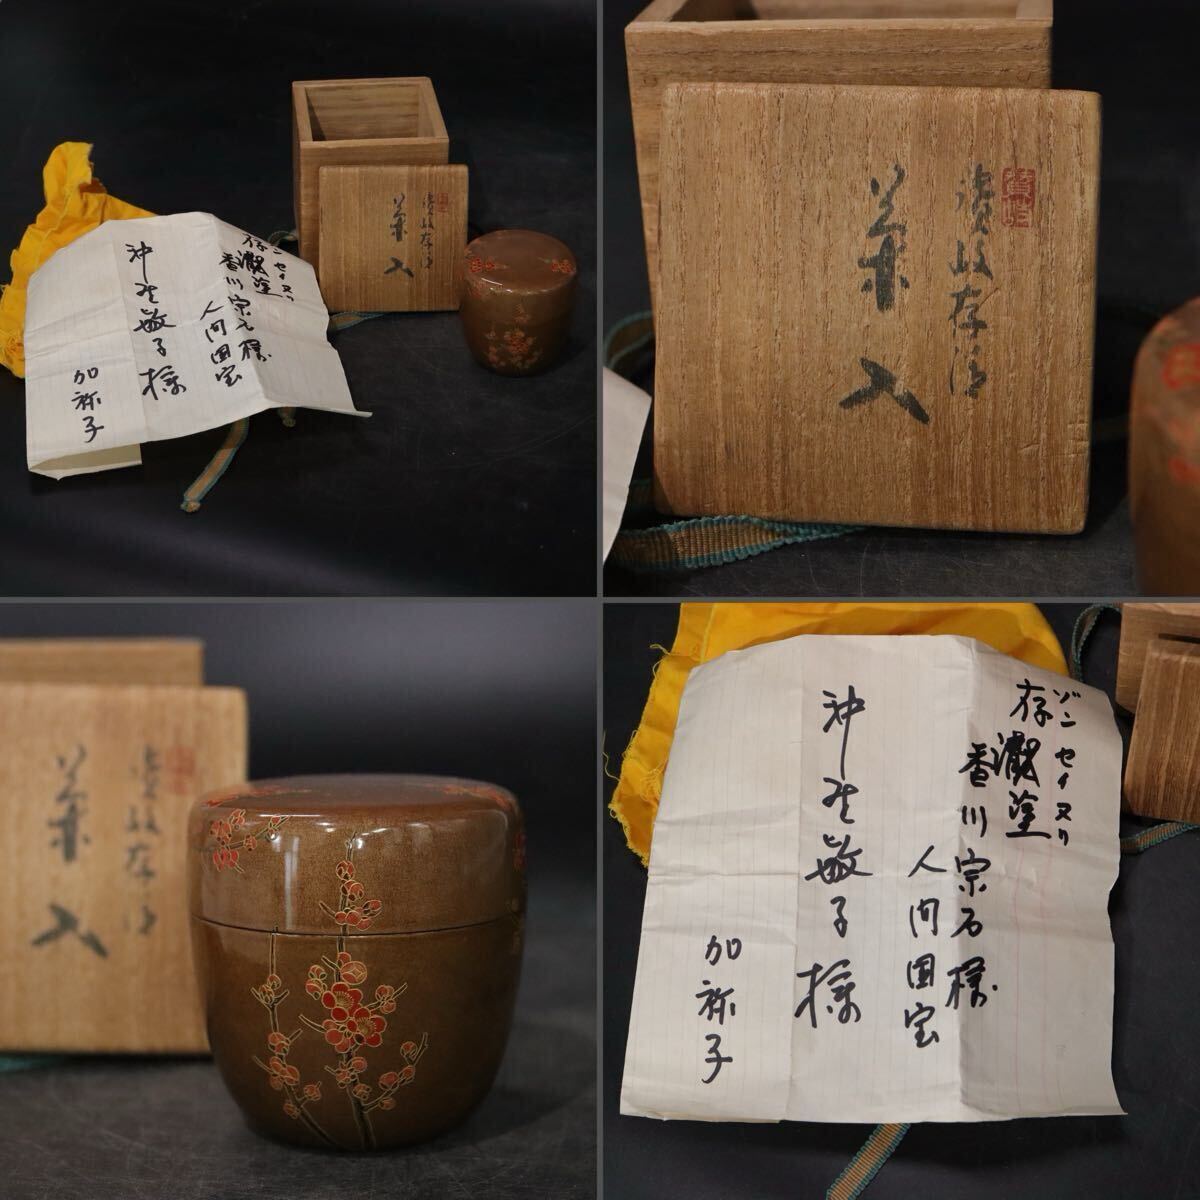 讃岐存清
菓入
ゾンセイヌリ
存瀞塗
香川宗石様
人间国宝
沖野敏子様
加祢子
讃岐存清
菓入
讃岐存清
菓入
ゾンセイヌリ
存瀞塗
香川宗石様
人间国宝
沖野敏子様
加祢子